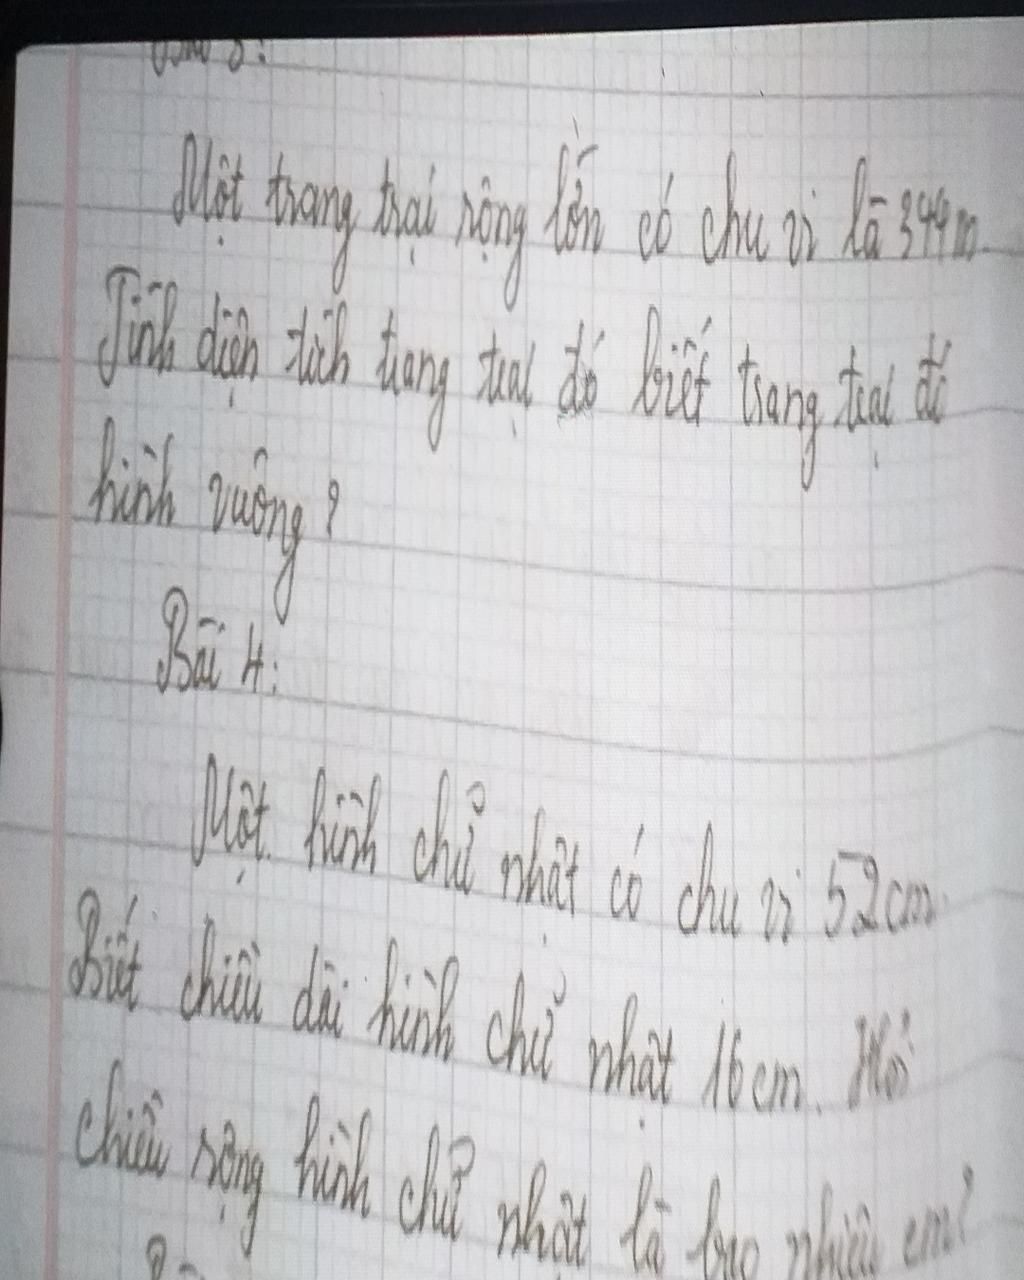 Một trang trại rộng lớn có chu vi là 344m.
Tính diện tích trang trại đó biết trang trại đó
hình vuông?
Bài 4:
Một hình chử nhật có chu vi 52cm.
Biết chiều dài hình chử nhật 16cm. Hỏi
chiều rộng hình chử nhật là bao nhiêu cm?